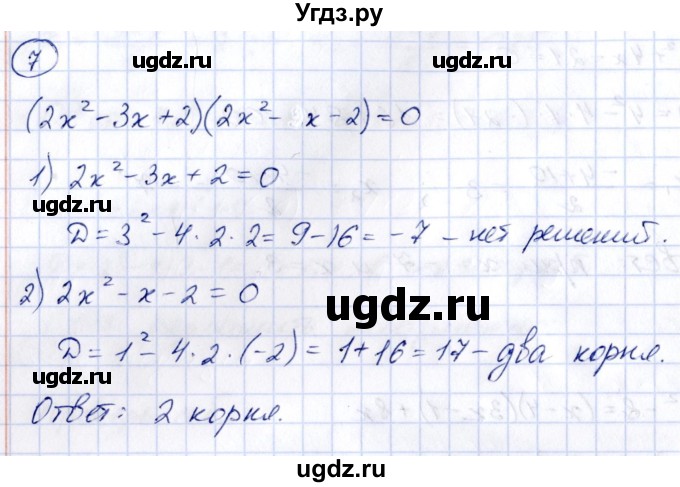 Угдз.ру
7
ugdz.ru ugdz.ru
(2x² - 3x + 2)(2x² -  x - 2) = 0
1) 2x² - 3x + 2 = 0
ugdz.ru ugdz.ru
D = 3² - 4 · 2 · 2 = 9 - 16 = -7 - нет решений.
2) 2x² - x - 2 = 0
ugdz.ru
D = 1² - 4 · 2 · (-2) = 1 + 16 = 17 - два корня.
Ответ: 2 корня.
ugdz.ru ugdz.ru
ugdz.ru